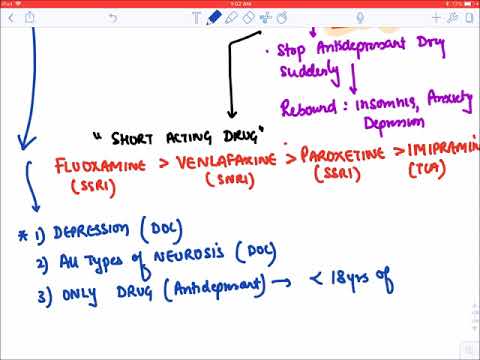 iPad
9:02 AM
77%
T
• Stop Antidepressant Drug
suddenly
Rebound : Insomnia, Anxiety
Depression
" SHORT ACTING DRUG"
FLUOXAMINE > VENLAFAXINE > PAROXETINE > IMIPRAMIN
(SSRI) (SNRI) (SSRI) (TCA)
* 1) DEPRESSION (DOC)
2) All Types of NEUROSIS (DOC)
3) ONLY DRUG (Antidepressant) → < 18yrs of